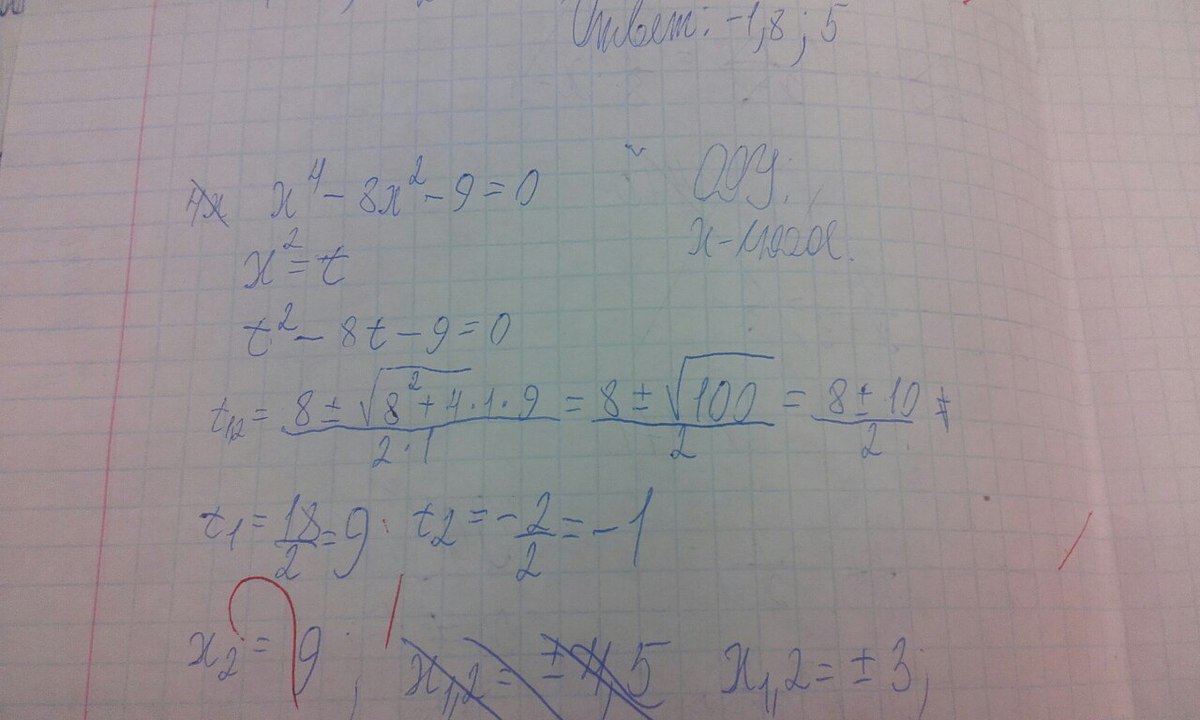 Ответ: -1,8; 5
x⁴ - 8x² - 9 = 0
ОДЗ:
x² = t
x - любое.
t² - 8t - 9 = 0
t₁,₂ = (8 ± √(8² + 4·1·9))/(2·1) = (8 ± √100)/2 = (8 ± 10)/2
t₁ = 18/2 = 9 t₂ = -2/2 = -1
x₂ = 9; x₁,₂ = ±4,5 x₁,₂ = ±3;